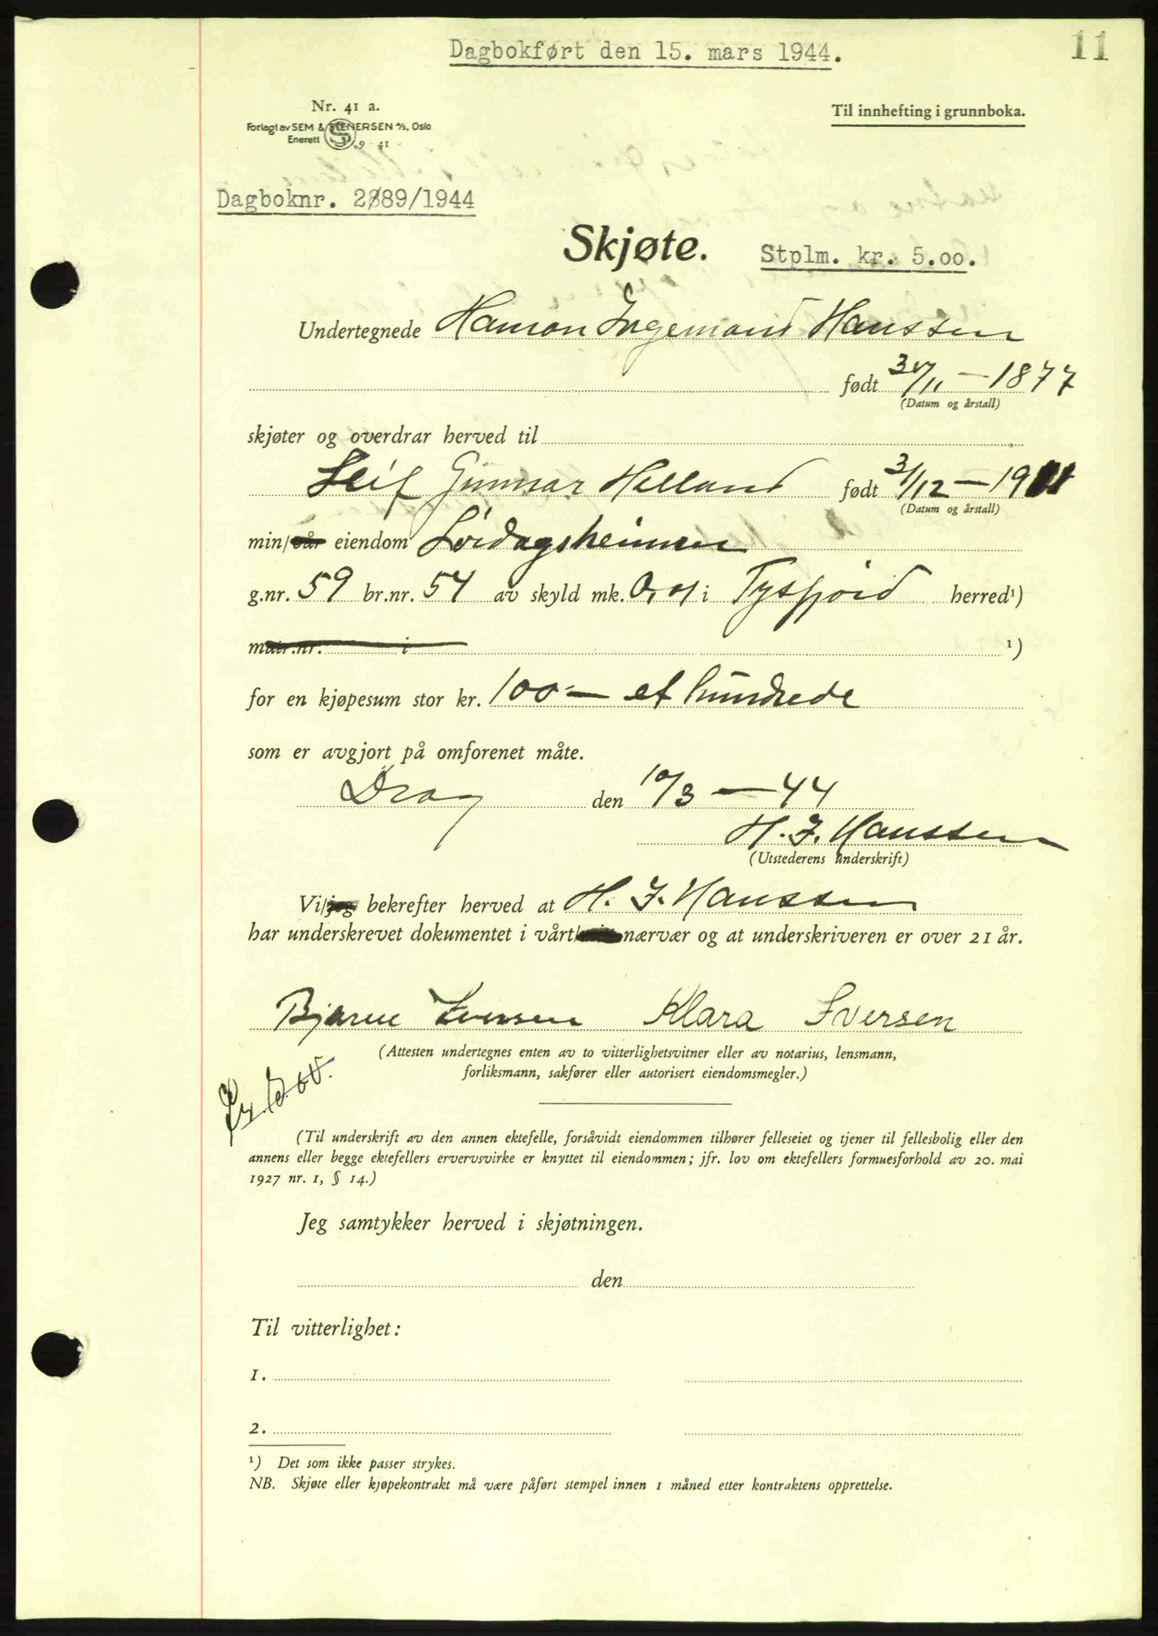 Dagbokført den 15. mars 1944.
11
Nr. 41 a.
Forlagt av SEM & STENERSEN A/S, Oslo
Enerett 9 - 41
Til innhefting i grunnboka.
Dagboknr. 2889/1944
Skjøte. Stplm. kr. 5.00.
Undertegnede Hanson Ingemand Hanssen
født 30/11 - 1877
(Datum og årstall)
skjøter og overdrar herved til
Leif Gunnar Helland født 31/12 - 1911
(Datum og årstall)
min/vår eiendom Lördagsheimen
g.nr. 59 br.nr. 54 av skyld mk. 0,01 i Tysfjord herred¹)
matr.nr. i ¹)
for en kjøpesum stor kr. 100 - et hundrede
som er avgjort på omforenet måte.
Drag den 10/3 - 44
H. I. Hanssen
(Utstederens underskrift)
Vi/jeg bekrefter herved at H. I. Hanssen
har underskrevet dokumentet i vårt/ nærvær og at underskriveren er over 21 år.
Bjarne Iversen Klara Iversen
(Attesten undertegnes enten av to vitterlighetsvitner eller av notarius, lensmann,
forliksmann, sakfører eller autorisert eiendomsmegler.)
(Til underskrift av den annen ektefelle, forsåvidt eiendommen tilhører felleseiet og tjener til fellesbolig eller den
annens eller begge ektefellers ervervsvirke er knyttet til eiendommen; jfr. lov om ektefellers formuesforhold av 20. mai
1927 nr. 1, § 14.)
Jeg samtykker herved i skjøtningen.
den
Til vitterlighet:
1.
2.
¹) Det som ikke passer strykes.
NB. Skjøte eller kjøpekontrakt må være påført stempel innen 1 måned etter kontraktens opprettelse.